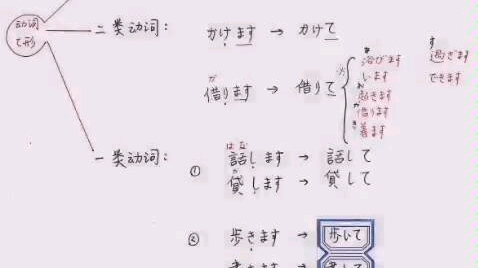 动词
て形
二类动词：
かけます → かけて
か
借ります → 借りて
あ
浴びます
います
お
起きます
か
借ります
き
着ます
す
過ぎます
できます
一类动词：
①
はな
話します → 話して
貸します → 貸して
② 歩きます → 歩いて